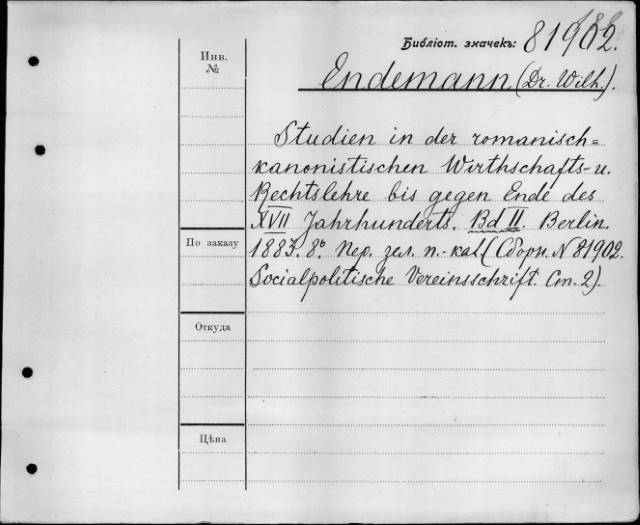 Библiот. значекъ: 81902.
Инв.
№
Endemann (Dr. Wilh.).
Studien in der romanisch=
kanonistischen Wirthschafts- u.
Rechtslehre bis gegen Ende des
XVII Jahrhunderts. Bd II. Berlin.
По заказу
1883. 8º. Пер. зел. п.-кал. (Сборн. N 81902.
Socialpolitische Vereinsschrift. Ст. 2).
Откуда
Цѣна